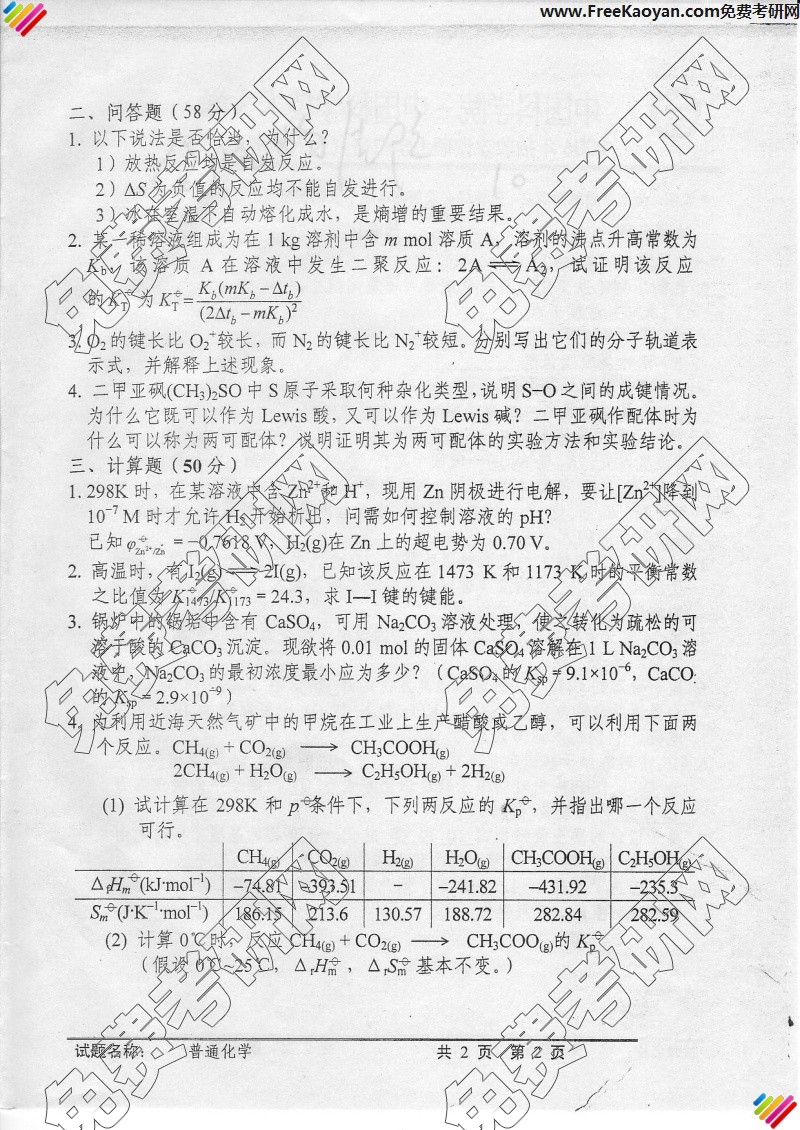 www.FreeKaoyan.com免费考研网
二、问答题（58 分）
1. 以下说法是否恰当，为什么？
1）放热反应均是自发反应。
2）ΔS 为负值的反应均不能自发进行。
3）冰在室温下自动熔化成水，是熵增的重要结果。
2. 某一稀溶液组成为在 1 kg 溶剂中含 m mol 溶质 A，溶剂的沸点升高常数为
Kb，该溶质 A 在溶液中发生二聚反应：2A ⇌ A2，试证明该反应
的 KT⊖ 为 KT⊖ = Kb(mKb − Δtb) / (2Δtb − mKb)²
3. O2 的键长比 O2⁺较长，而 N2 的键长比 N2⁺较短。分别写出它们的分子轨道表
示式，并解释上述现象。
4. 二甲亚砜(CH3)2SO 中 S 原子采取何种杂化类型，说明 S−O 之间的成键情况。
为什么它既可以作为 Lewis 酸，又可以作为 Lewis 碱？二甲亚砜作配体时为
什么可以称为两可配体？说明证明其为两可配体的实验方法和实验结论。
三、计算题（50 分）
1. 298K 时，在某溶液中含 Zn²⁺和 H⁺，现用 Zn 阴极进行电解，要让[Zn²⁺]降到
10⁻⁷ M 时才允许 H2 开始析出，问需如何控制溶液的 pH？
已知 φ⊖Zn²⁺/Zn = −0.7618 V，H2(g)在 Zn 上的超电势为 0.70 V。
2. 高温时，有 I2(g) ⇌ 2I(g)，已知该反应在 1473 K 和 1173 K 时的平衡常数
之比值为 K1473/K1173 = 24.3，求 I—I 键的键能。
3. 锅炉中的锅垢中含有 CaSO4，可用 Na2CO3 溶液处理，使之转化为疏松的可
溶于酸的 CaCO3 沉淀。现欲将 0.01 mol 的固体 CaSO4 溶解在 1 L Na2CO3 溶
液中，Na2CO3 的最初浓度最小应为多少？（CaSO4 的 Ksp = 9.1×10⁻⁶，CaCO3
的 Ksp = 2.9×10⁻⁹）
4. 为利用近海天然气矿中的甲烷在工业上生产醋酸或乙醇，可以利用下面两
个反应。CH4(g) + CO2(g) ⟶ CH3COOH(g)
2CH4(g) + H2O(g) ⟶ C2H5OH(g) + 2H2(g)
(1) 试计算在 298K 和 p⊖条件下，下列两反应的 Kp⊖，并指出哪一个反应
可行。
CH4(g) CO2(g) H2(g) H2O(g) CH3COOH(g) C2H5OH(g)
ΔfHm⊖(kJ·mol⁻¹) −74.81 −393.51 − −241.82 −431.92 −235.3
Sm⊖(J·K⁻¹·mol⁻¹) 186.15 213.6 130.57 188.72 282.84 282.59
(2) 计算 0℃ 时，反应 CH4(g) + CO2(g) ⟶ CH3COO(g)的 Kp⊖
（假设 0℃~25℃，ΔrHm⊖，ΔrSm⊖ 基本不变。）
试题名称： 普通化学 共 2 页 第 2 页
免费考研网
免费考研网
免费考研网
免费考研网
免费考研网
免费考研网